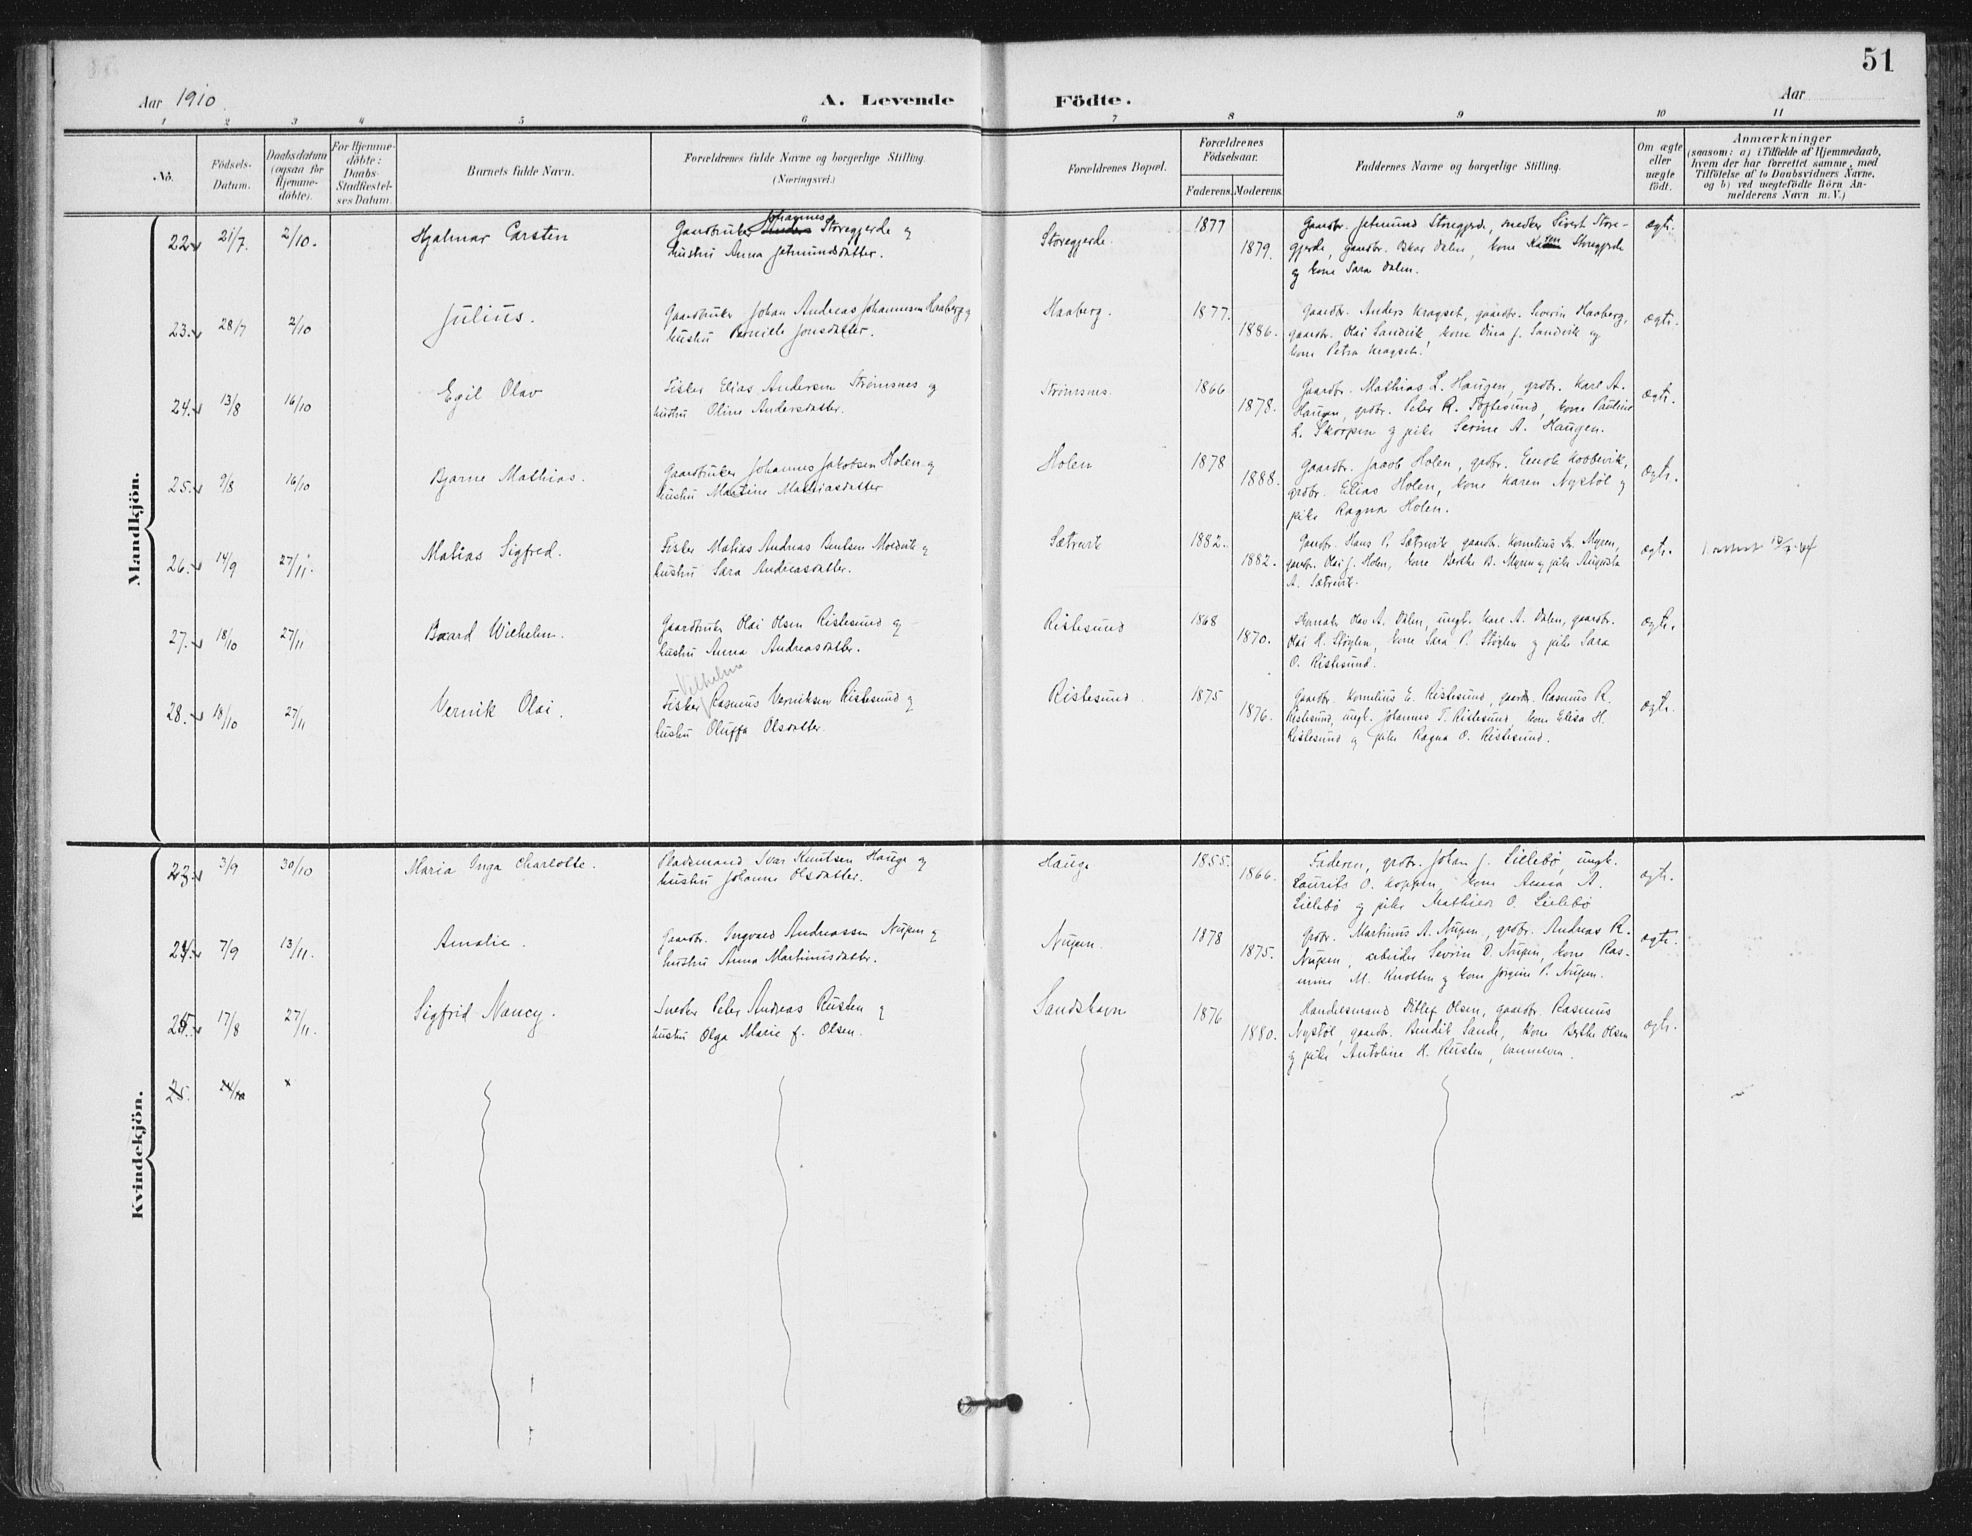 51
Aar 1910
A. Levende Födte.
Aar
1 2 3 4 5 6 7 8 9 10 11
No.
Födsels-
Datum.
Daabsdatum
(ogsaa for
Hjemme-
döbte).
For Hjemme-
döbte:
Daabs-
Stadfæstel-
ses Datum.
Barnets fulde Navn.
Forældrenes fulde Navne og borgerlige Stilling.
(Næringsvei.)
Forældrenes Bopæl.
Forældrenes
Födselsaar.
Faderens. Moderens.
Faddernes Navne og borgerlige Stilling.
Om ægte
eller
uægte
födt.
Anmærkninger
(saasom: a) i Tilfælde af Hjemmedaab,
hvem der har forrettet samme, med
Tilföielse af to Daabsvidners Navne,
og b) ved uægtefödte Börn An-
melderens Navn m. V.)
Mandkjön.
22. 21/7. 2/10. Hjalmar Carsten
Gaardbruker Johannes Storegjerde og
hustru Anna Jetmundsdatter.
Storegjerde. 1877 1879.
Gaardbr. Jetmund Storegjerde, smedker Sivert Store-
gjerde, gaardbr. Oskar Dalen, kone Storegjerde
og kone Sara Dalen.
ægte.
23. 28/7 2/10 Julius.
Gaardbruker Johan Andreas Johannesen Haaberg og
hustru Pernille Jonsdatter.
Haaberg. 1877. 1886.
Gaardbr. Anders Kragset, gaardbr. Severin Haaberg,
gaardbr. Olai Sandvik, kone Dina J. Sandvik og
kone Petra Kragset.
ægte.
24. 13/8 16/10 Egil Olav
Fisker Elias Andersen Strömsnes og
hustru Oline Andersdatter.
Strömsnes. 1866 1878.
Gaardbr. Mathias L. Haugen, grdbr. Karl A.
Haugen, grdbr. Peter R. Toftesund, kone Pauline
L. Skorpen og pike Serine A. Haugen.
ægte.
25. 9/8 16/10 Bjarne Mathias.
Gaardbruker Johannes Jakobsen Holen og
hustru Martine Mathiasdatter
Holen 1878 1888.
Gaardbr. Jacob Holen, grdbr. Enok Kobbevik,
grdbr. Elias Holen, kone Karen Nystöl og
pike Ragna Holen.
ægte.
26. 14/9 27/11. Matias Sigfred.
Fisker Matias Andreas Bentsen Moldvik og
hustru Sara Andreasdatter.
Sætrevik 1882. 1882.
Gaardbr. Hans P. Sætrevik, gaardbr. Kornelius Myren,
gaardbr. Olai J. Holen, kone Berthe B. Myren og pike Augusta
A. Sætrevik.
ægte.
27. 18/10 27/11 Baard Wilhelm.
Gaardbruker Olai Olsen Ristesund og
hustru Anna Andreasdatter.
Ristesund 1868 1870.
Olav A. Dalen, ungk. Kare A. Dalen, gaardbr.
Olai H. Stöylen, kone Sara P. Stöylen og pike Sara
O. Ristesund.
ægte.
28. 18/10 27/11 Vernik Olai.
Vilhelm
Fisker Rasmus Verniksen Ristesund og
hustru Oluffa Olsdatter.
Ristesund 1875 1876.
Gaardbr. Kornelius E. Ristesund, gaardbr. Rasmus R.
Ristesund, ungk. Johannes T. Ristesund, kone Elisa H.
Ristesund og pike Ragna O. Ristesund.
ægte.
Kvindekjön.
23. 3/9 30/10 Maria Inga Charlotte.
Pladsmand Ivar Knutsen Hauge og
hustru Johanne Olsdatter.
Hauge 1855. 1866.
Faderen, grdbr. Johan J. Lillebö, ungk.
Laurits O. Koppen, kone Anna A.
Lillebö og pike Mathilde O. Lillebö
ægte.
24. 7/9 13/11. Amalie.
Gaardbr. Ingvald Andreassen Nupen og
hustru Anna Martinusdatter.
Nupen. 1878 1875.
Grdbr. Martinus A. Nupen, grdbr. Andreas R.
Nupen, arbeider Severin D. Nupen, kone Ras-
mine M. Knotten og kone Jörgine P. Nupen.
ægte.
25. 17/8 27/11. Sigfrid Nancy.
Smeder Peter Andreas Rusten og
hustru Olga Marie f. Olsen.
Sandshavn 1876 1880.
Handelsmand Ditlef Olsen, gaardbr. Rasmus
Nystöl, gaardbr. Bendik Sande, kone Berthe Olsen
og pike Antoline H. Rusten, Vannelven.
ægte.
25. 24/10